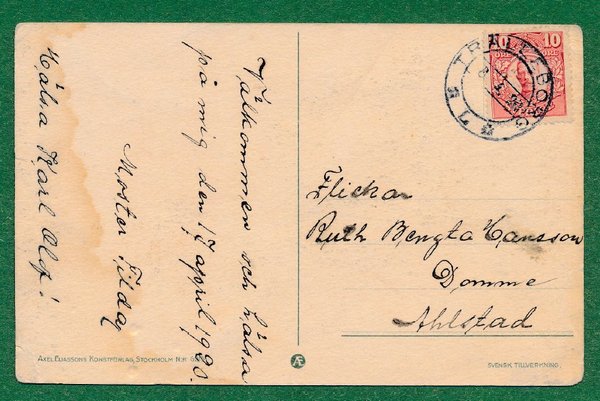 Välkommen och hälsa
på mig den 17 april 1920.
Moster Tilda
Hälsa Karl Olof!
TRÄLLEBORG
10 10
ÖRE
Flickan
Ruth Bengta Hansson
Domme
Ahlstad
AXEL ELIASSONS KONSTFÖRLAG, STOCKHOLM N:R
Æ
SVENSK TILLVERKNING